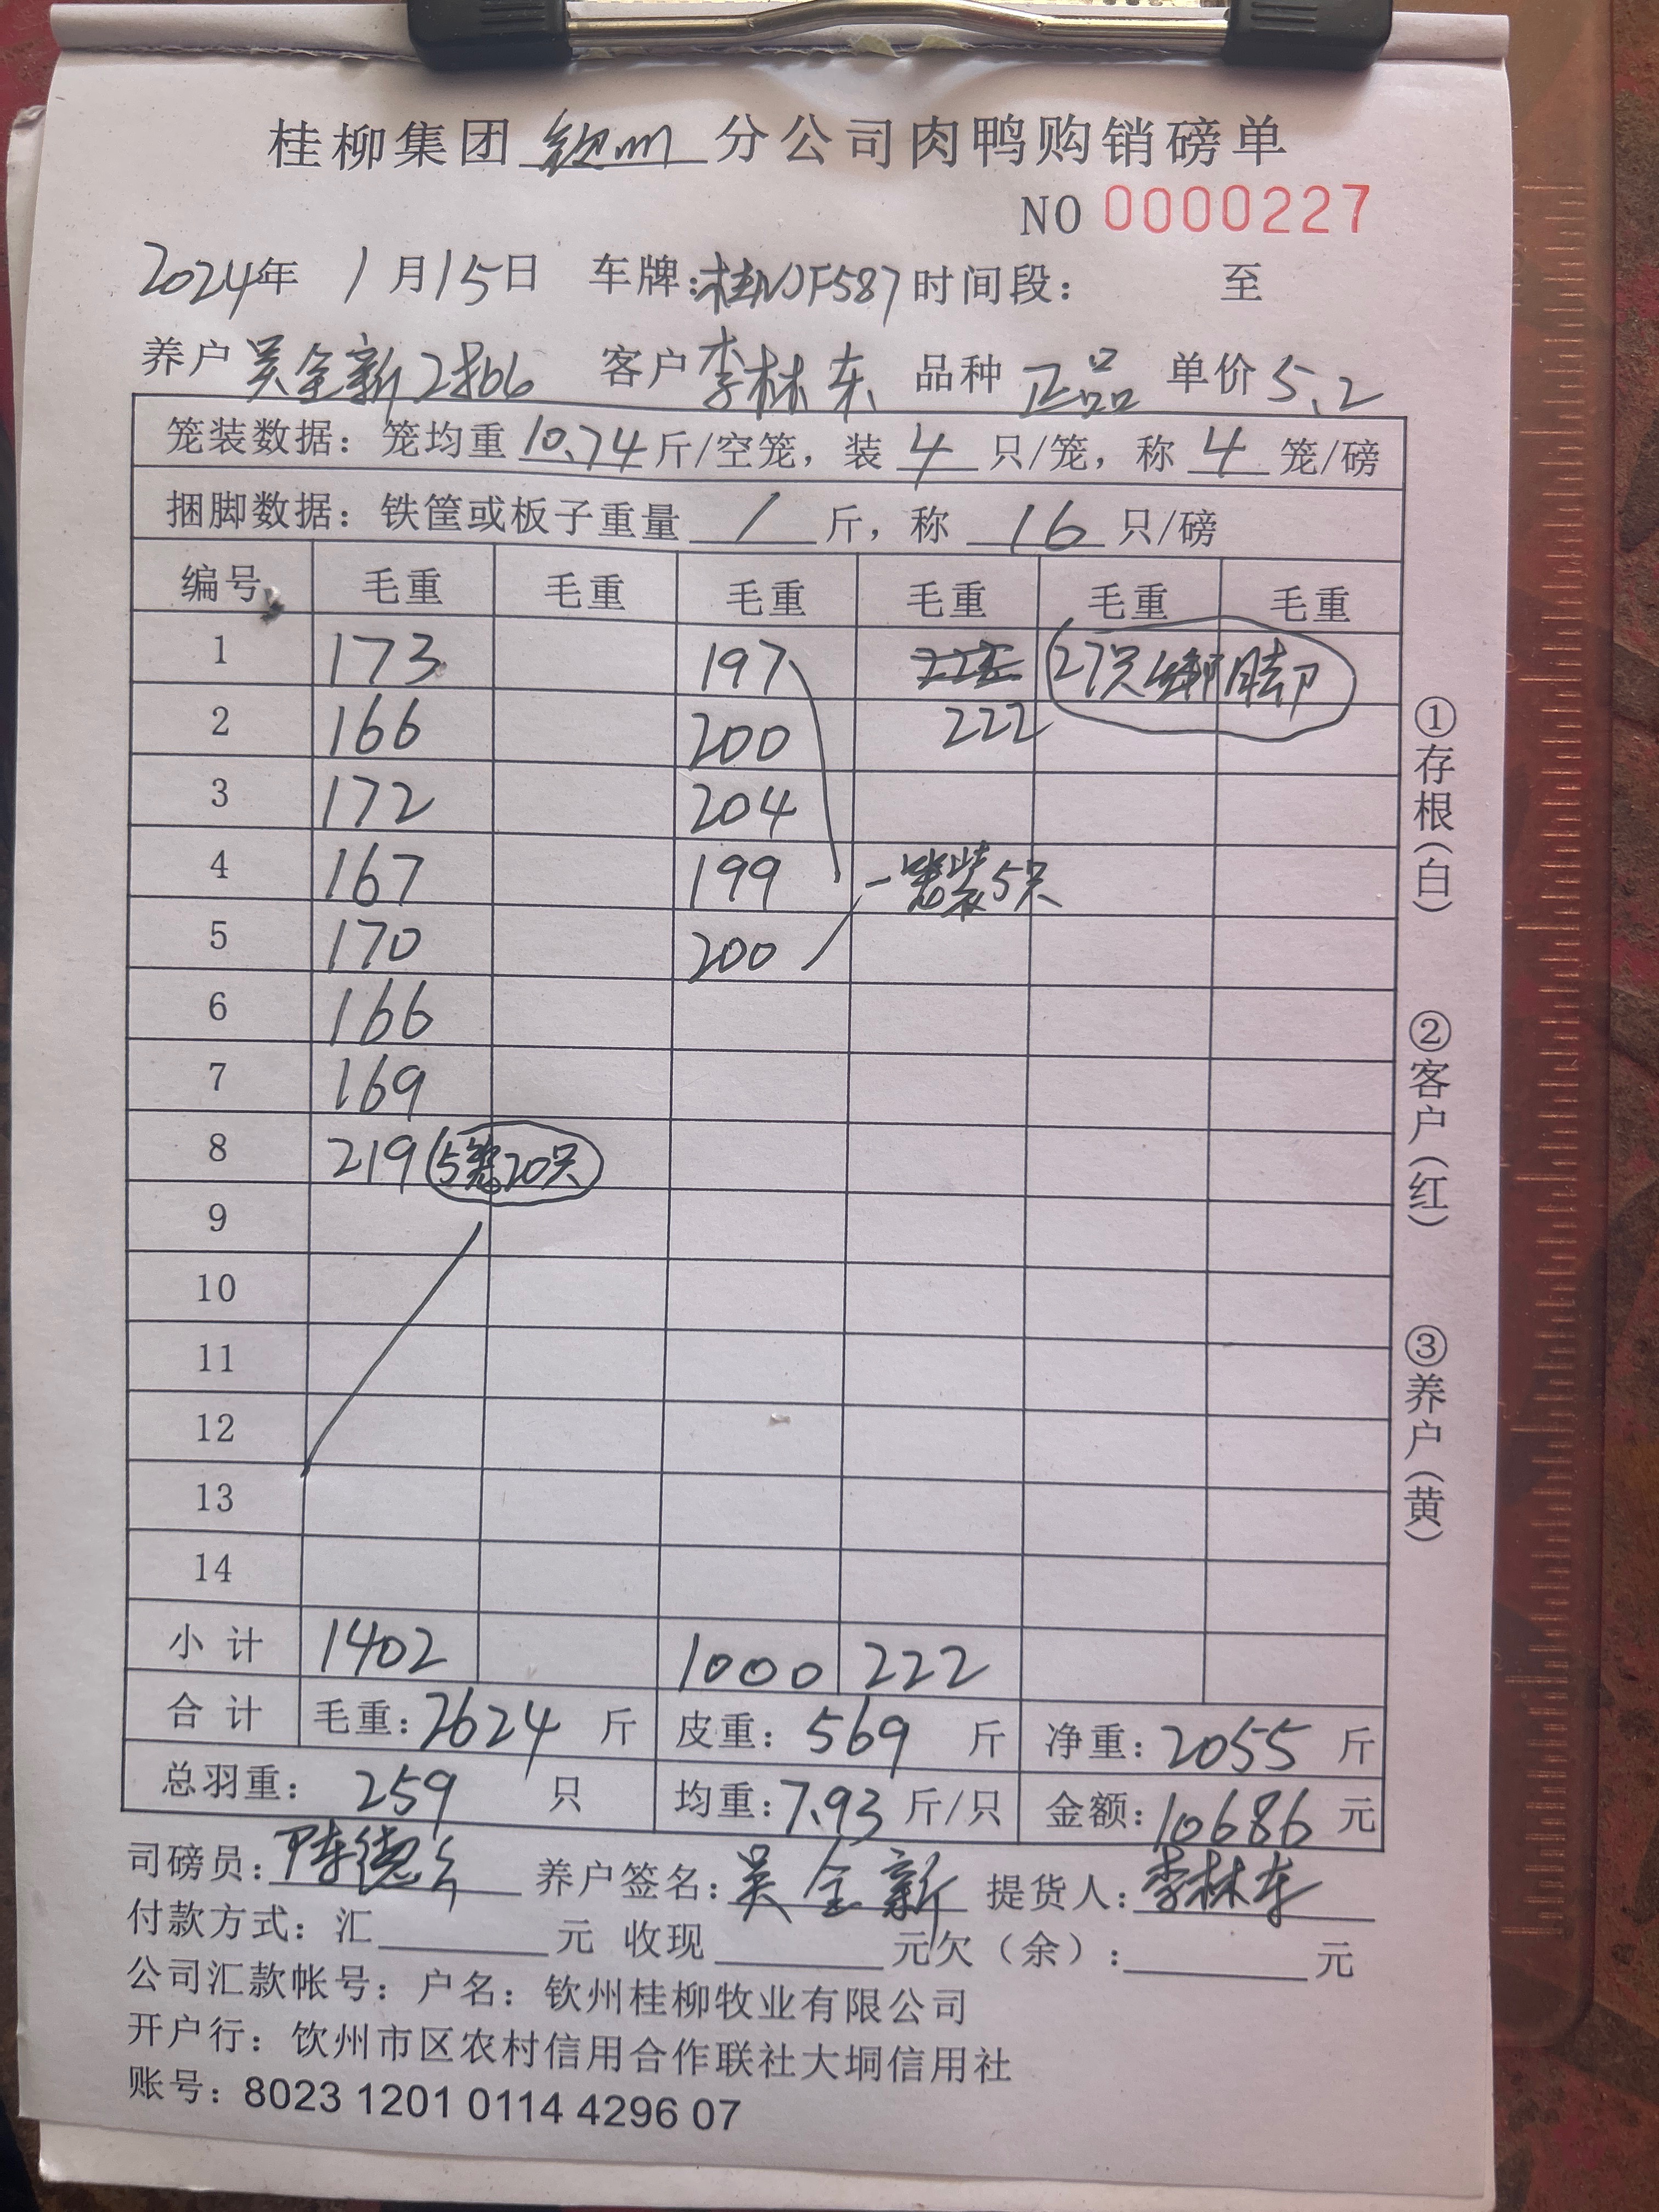 桂柳集团 钦州 分公司肉鸭购销磅单
NO 0000227
2024年 1月15日 车牌: 时间段: 至
养户 吴全新 客户 李林东 品种 正品 单价 5.2
笼装数据: 笼均重 10.74 斤/空笼, 装 4 只/笼, 称 4 笼/磅
捆脚数据: 铁筐或板子重量 / 斤, 称 16 只/磅
编号 毛重 毛重 毛重 毛重 毛重 毛重
1 173 197 27只绑脚
2 166 200 222
3 172 204
4 167 199 一笼装5只
5 170 200
6 166
7 169
8 219 5笼20只
9
10
11
12
13
14
小计 1402 1000 222
合计 毛重: 2624 斤 皮重: 569 斤 净重: 2055 斤
总羽重: 259 只 均重: 7.93 斤/只 金额: 10686 元
司磅员: 养户签名: 吴全新 提货人: 李林东
付款方式: 汇 元 收现 元欠(余): 元
公司汇款帐号: 户名: 钦州桂柳牧业有限公司
开户行: 钦州市区农村信用合作联社大垌信用社
账号: 8023 1201 0114 4296 07
①存根(白)
②客户(红)
③养户(黄)